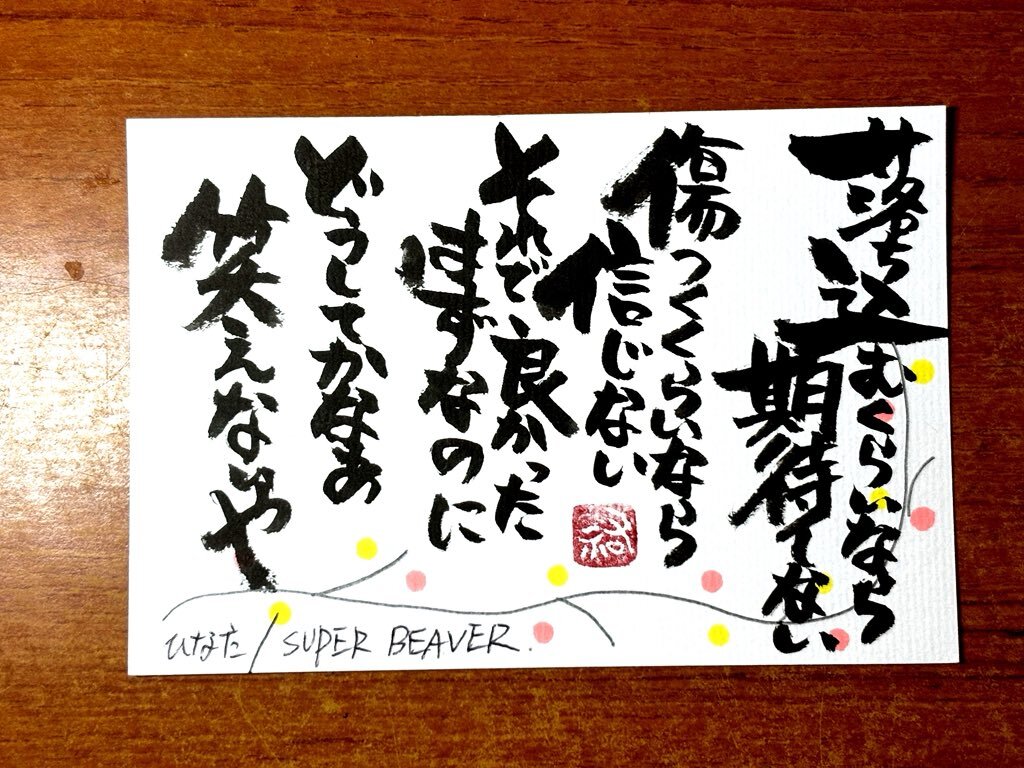 落ち込むくらいなら
期待しない
傷つくくらいなら
信じない
それで良かった
はずなのに
どうしてかなぁ
笑えないや
ひなた/SUPER BEAVER.